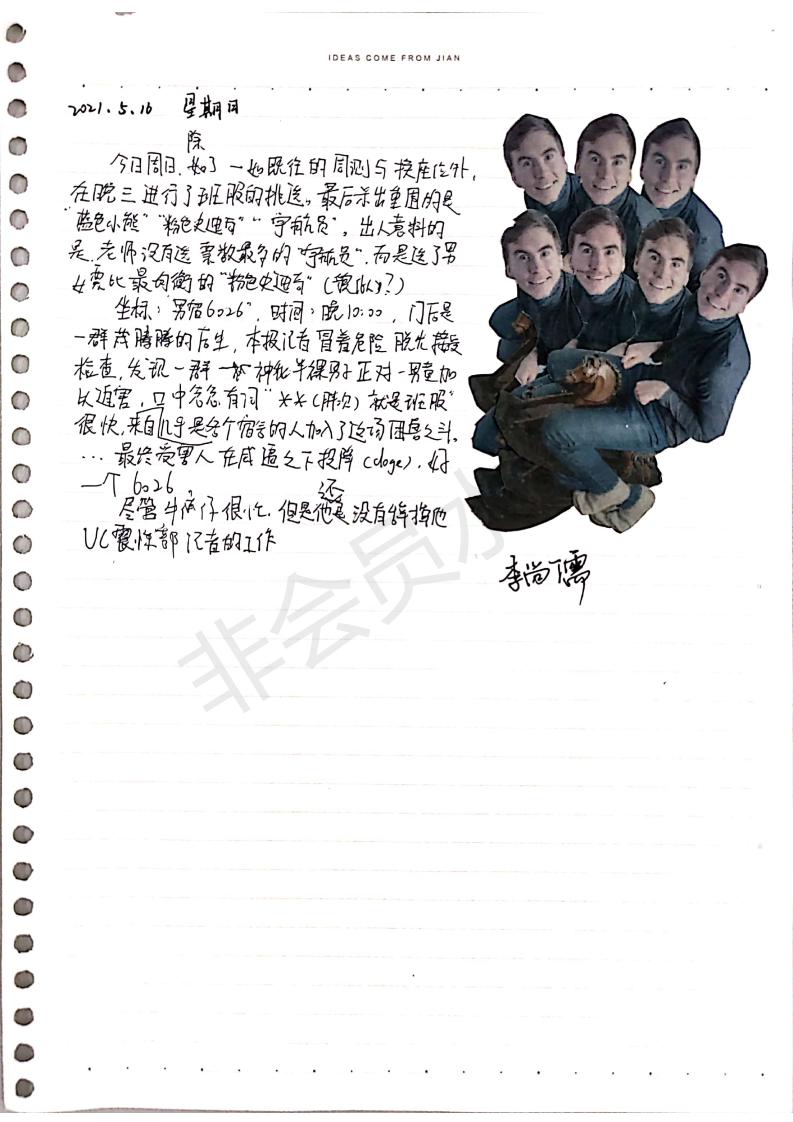 IDEAS COME FROM JIAN
2021.5.16 星期日
除
今日周日,如了一如既往的周测与换座位外,
在晚三进行了班服的挑选。最后杀出重围的是
"蓝色小熊""粉色史迪奇""宇航员"。出人意料的
是,老师没有选票数最多的"宇航员",而是选了男
女票比最均衡的"粉色史迪奇"(貌似?)
坐标:男宿6026",时间:晚10:00,门后是
一群 腾腾的后生,本报记者冒着危险脱光接受
检查,发现一群 神化半裸男子正对一男童加
以迫害,口中念念有词"**(胖次)就是班服"
很快,来自几乎是各个宿舍的人加入了这场困兽之斗。
...最终受害人在威逼之下投降(doge),好
一个6026
还
尽管牛肉仔很忙,但是他是没有辞掉他
UC震惊部记者的工作
李尚儒
非会员水